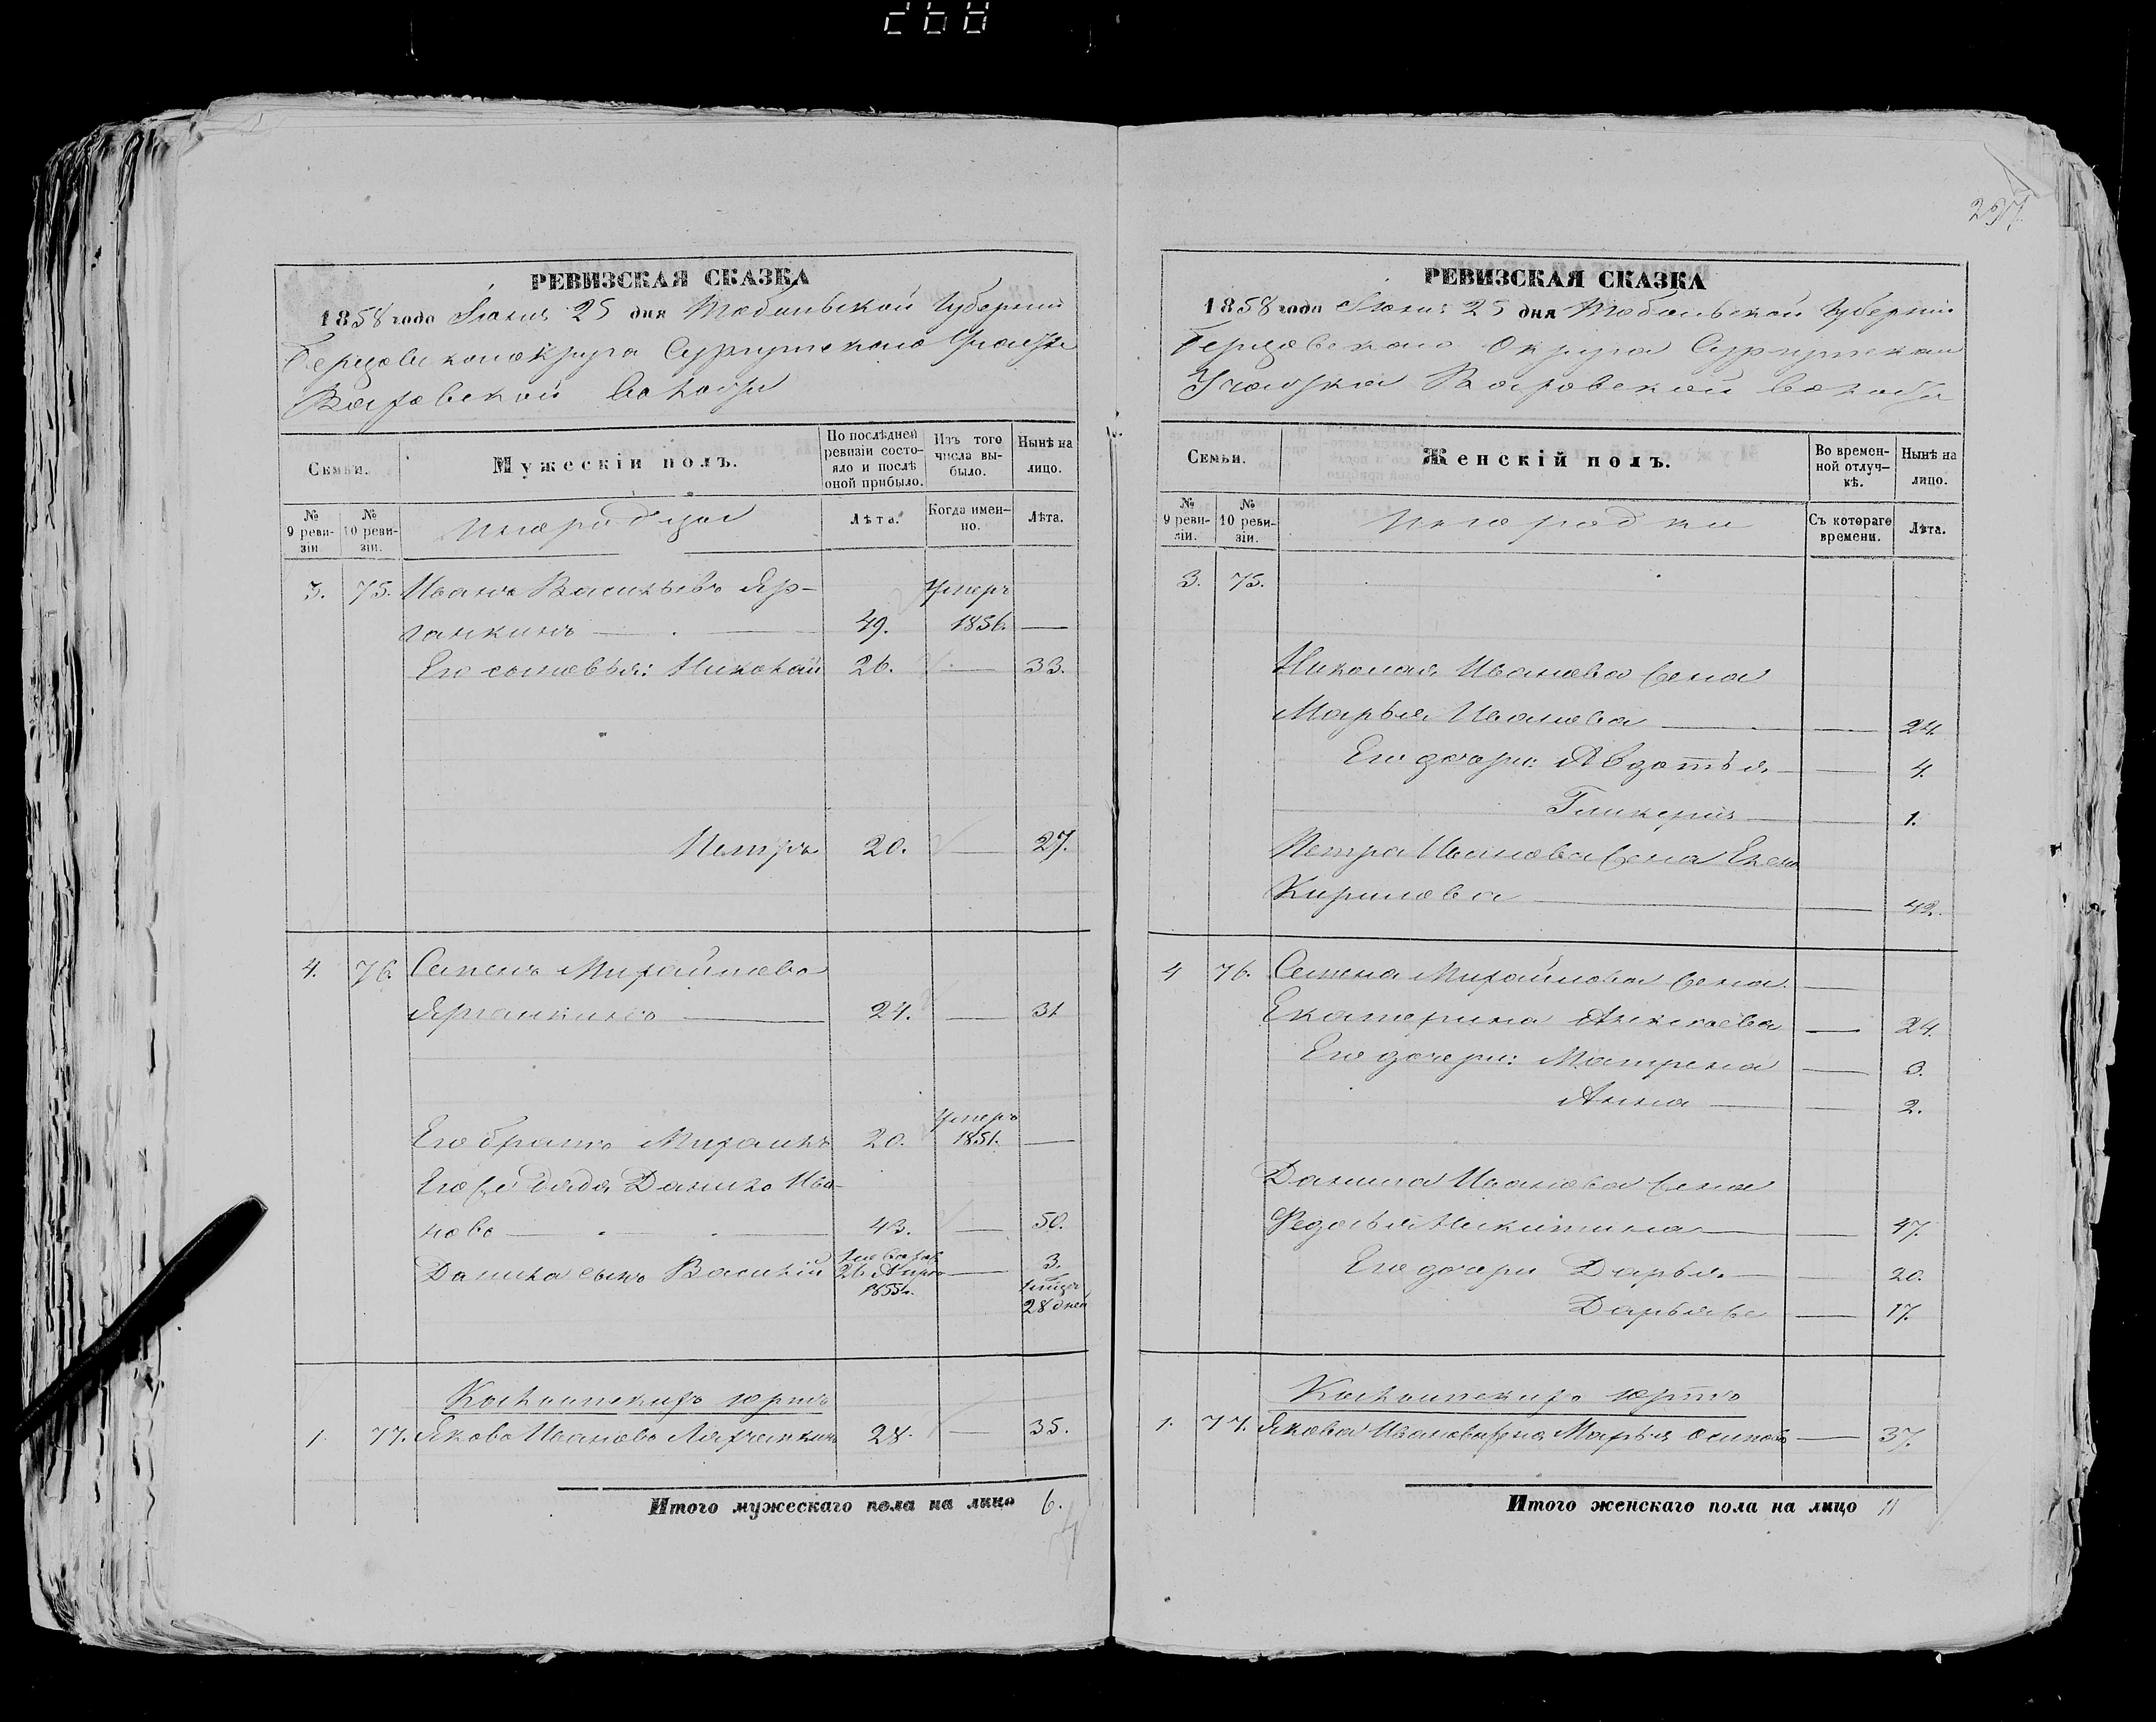 268
РЕВИЗСКАЯ СКАЗКА
1858 года Июня 25 дня Тобольской Губерніи
Березовскаго Округа Сургутскаго Участка
Ваховской Волости
Семьи.
Мужескій полъ.
По послѣдней ревизіи состояло и послѣ оной прибыло.
Изъ того числа выбыло.
Нынѣ на лицо.
№ 9 ревизіи
№ 10 ревизіи.
Инородцы
Лѣта.
Когда именно.
Лѣта.
3. 75. Иванъ Васильевъ Яр- Умеръ
ганкинъ — 49. 1856. —
Его сыновья: Николай 26. — 33.
Петръ 20. — 27.
4. 76. Семенъ Михайловъ
Ярганкинъ — 24. — 31
Умеръ
Его братъ Михаилъ 20. 1851. —
Его же дядя Данило Ива-
новъ — 43. — 50.
Данила сынъ Василій 26 1855. — 3. 28 дней
юртъ
1. 77. Яковъ Ивановъ 28. — 35.
Итого мужескаго пола на лицо 6.
297.
РЕВИЗСКАЯ СКАЗКА
1858 года Июня 25 дня Тобольской Губерніи
Березовскаго Округа Сургутскаго
Участка Ваховской волости
Семьи.
Женскій полъ.
Во временной отлучкѣ.
Нынѣ на лицо.
№ 9 ревизіи.
№ 10 ревизіи.
Инородки
Съ котораго времени.
Лѣта.
3. 75.
Николая Иванова жена
Марья Иванова — 24.
Его дочери: Авдотья — 4.
Гликерія — 1.
Петра Иванова жена Елена
Кирилова — 42.
4 76. Семена Михайлова жена —
Екатерина — 24.
Его дочери: Матрена — 3.
Анна — 2.
Данила Иванова жена
Федосья Никитина — 47.
Его дочери Дарья — 20.
Дарья же — 17.
юртъ
1. 77. Якова Иванова жена Марья Осипова — 37.
Итого женскаго пола на лицо 11